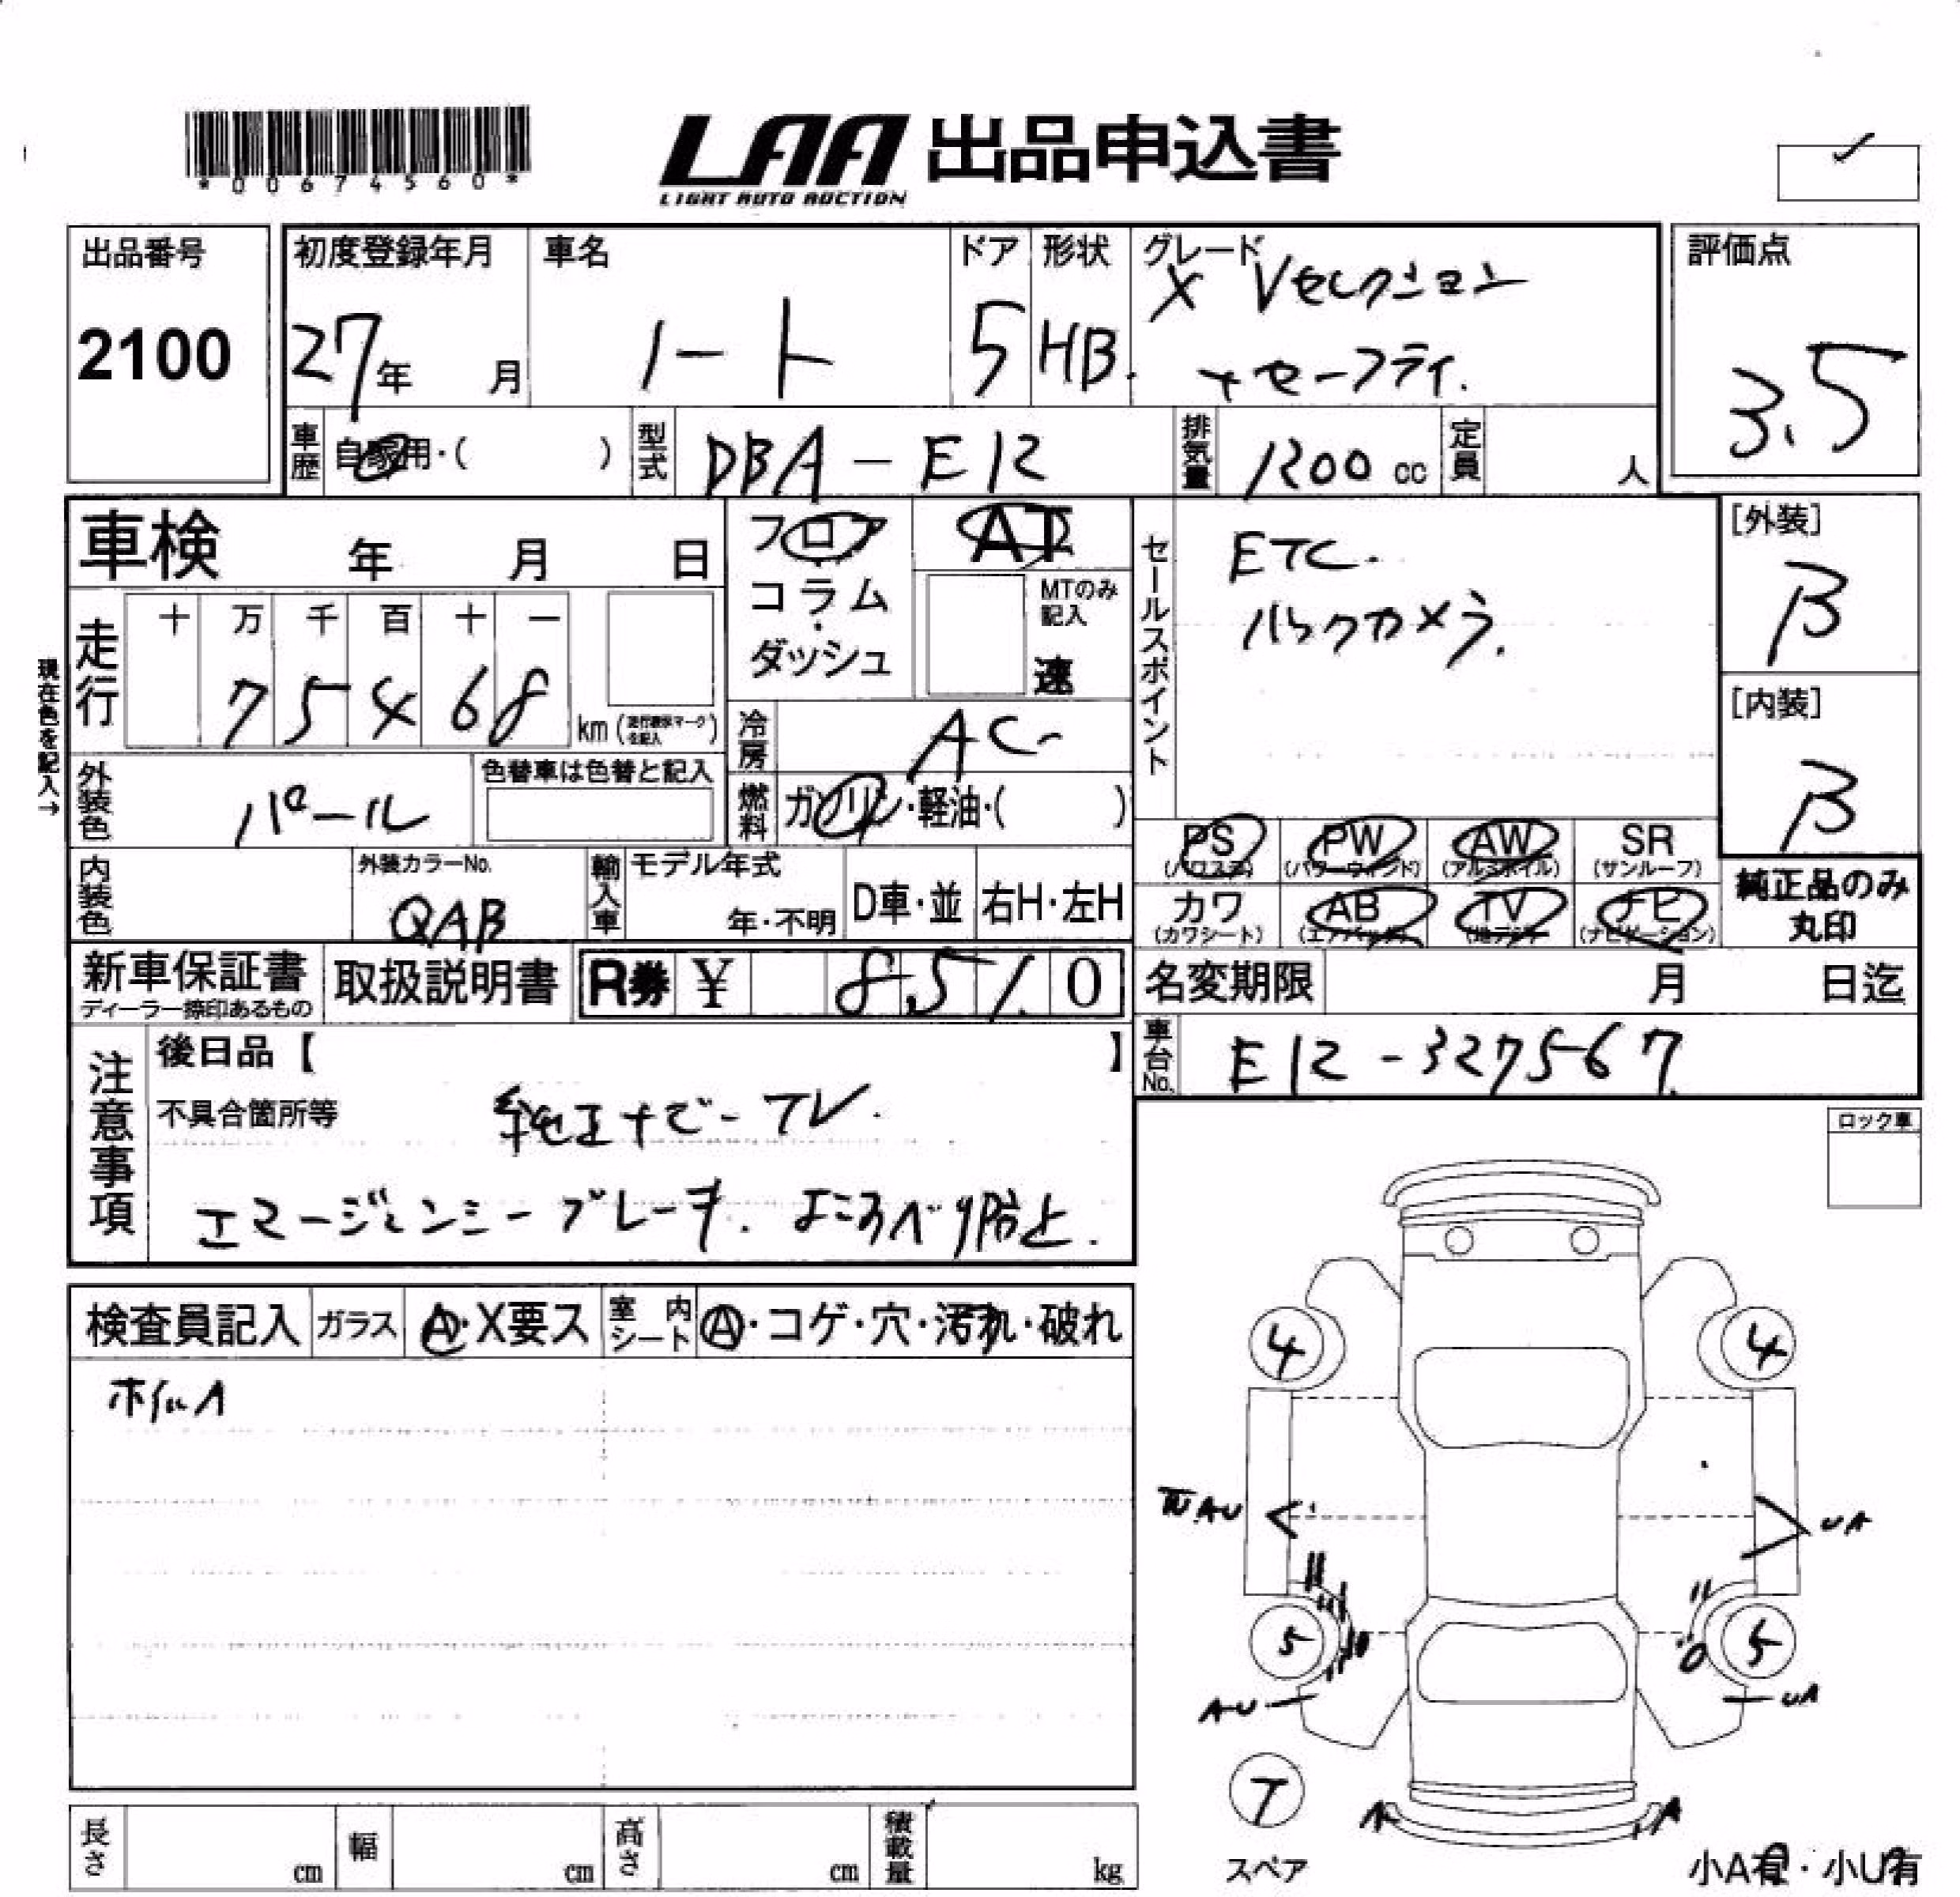 *00674560*
LAA 出品申込書
LIGHT AUTO AUCTION
出品番号 初度登録年月 車名 ドア 形状 グレード 評価点
2100 27年 月 ノート 5 HB. X Vセレクション
+セーフティ.
3.5
車歴 自家用・( ) 型式 DBA-E12 排気量 1200 cc 定員 人
車検 年 月 日 フロア AT セールスポイント ETC. [外装]
コラム MTのみ記入 バックカメラ. B
ダッシュ 速
現在色を記入→
走行 十 万 千 百 十 一
7 5 4 6 8 km (走行該当マークを記入)
冷房 AC
[内装]
B
外装色 パール 色替車は色替と記入 燃料 ガソリン・軽油・( )
PS (パワステ) PW (パワーウィンド) AW (アルミホイル) SR (サンルーフ)
内装色 外装カラーNo. QAB 輸入車 モデル年式 年・不明 D車・並 右H・左H
カワ (カワシート) AB (エアバッグ) TV (地デジ) ナビ (ナビゲーション)
純正品のみ
丸印
新車保証書 取扱説明書 R券 ¥ 8,510 名変期限 月 日迄
ディーラー捺印あるもの
注意事項 後日品【 】 車台No. E12-327567
不具合箇所等 純正ナビ-TV.
エマージェンシーブレーキ. よこすべり防止.
ロック車
検査員記入 ガラス A・X要ス 室内シート A・コゲ・穴・汚れ・破れ
ホイルA
4 4
AU UA
5 5
AU UA
T
スペア
A A
長さ cm 幅 cm 高さ cm 積載量 kg
小A有・小U有